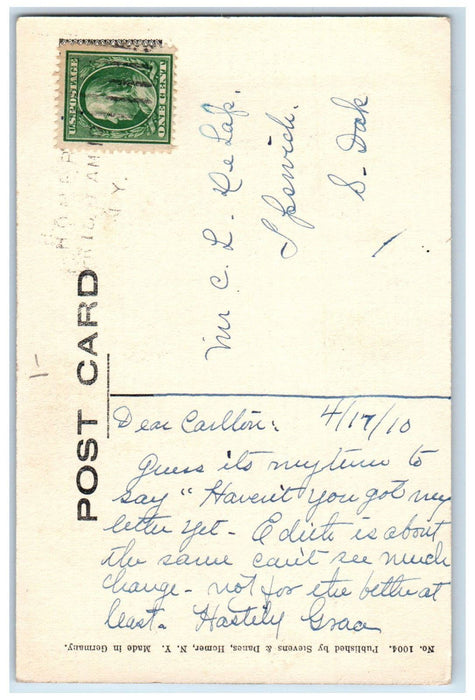 POST CARD
U.S. POSTAGE
ONE CENT
HOMER
N.Y.
Mr C. L. DeLap.
Ipswich.
S. Dak
1-
4/17/10
Dear Carlton:
Guess its my turn to
say "Haven't you got my
letter yet - Edith is about
the same can't see much
change - not for the better at
least. Hastily Grace
No. 1004. Published by Stevens & Danes, Homer, N. Y. Made in Germany.